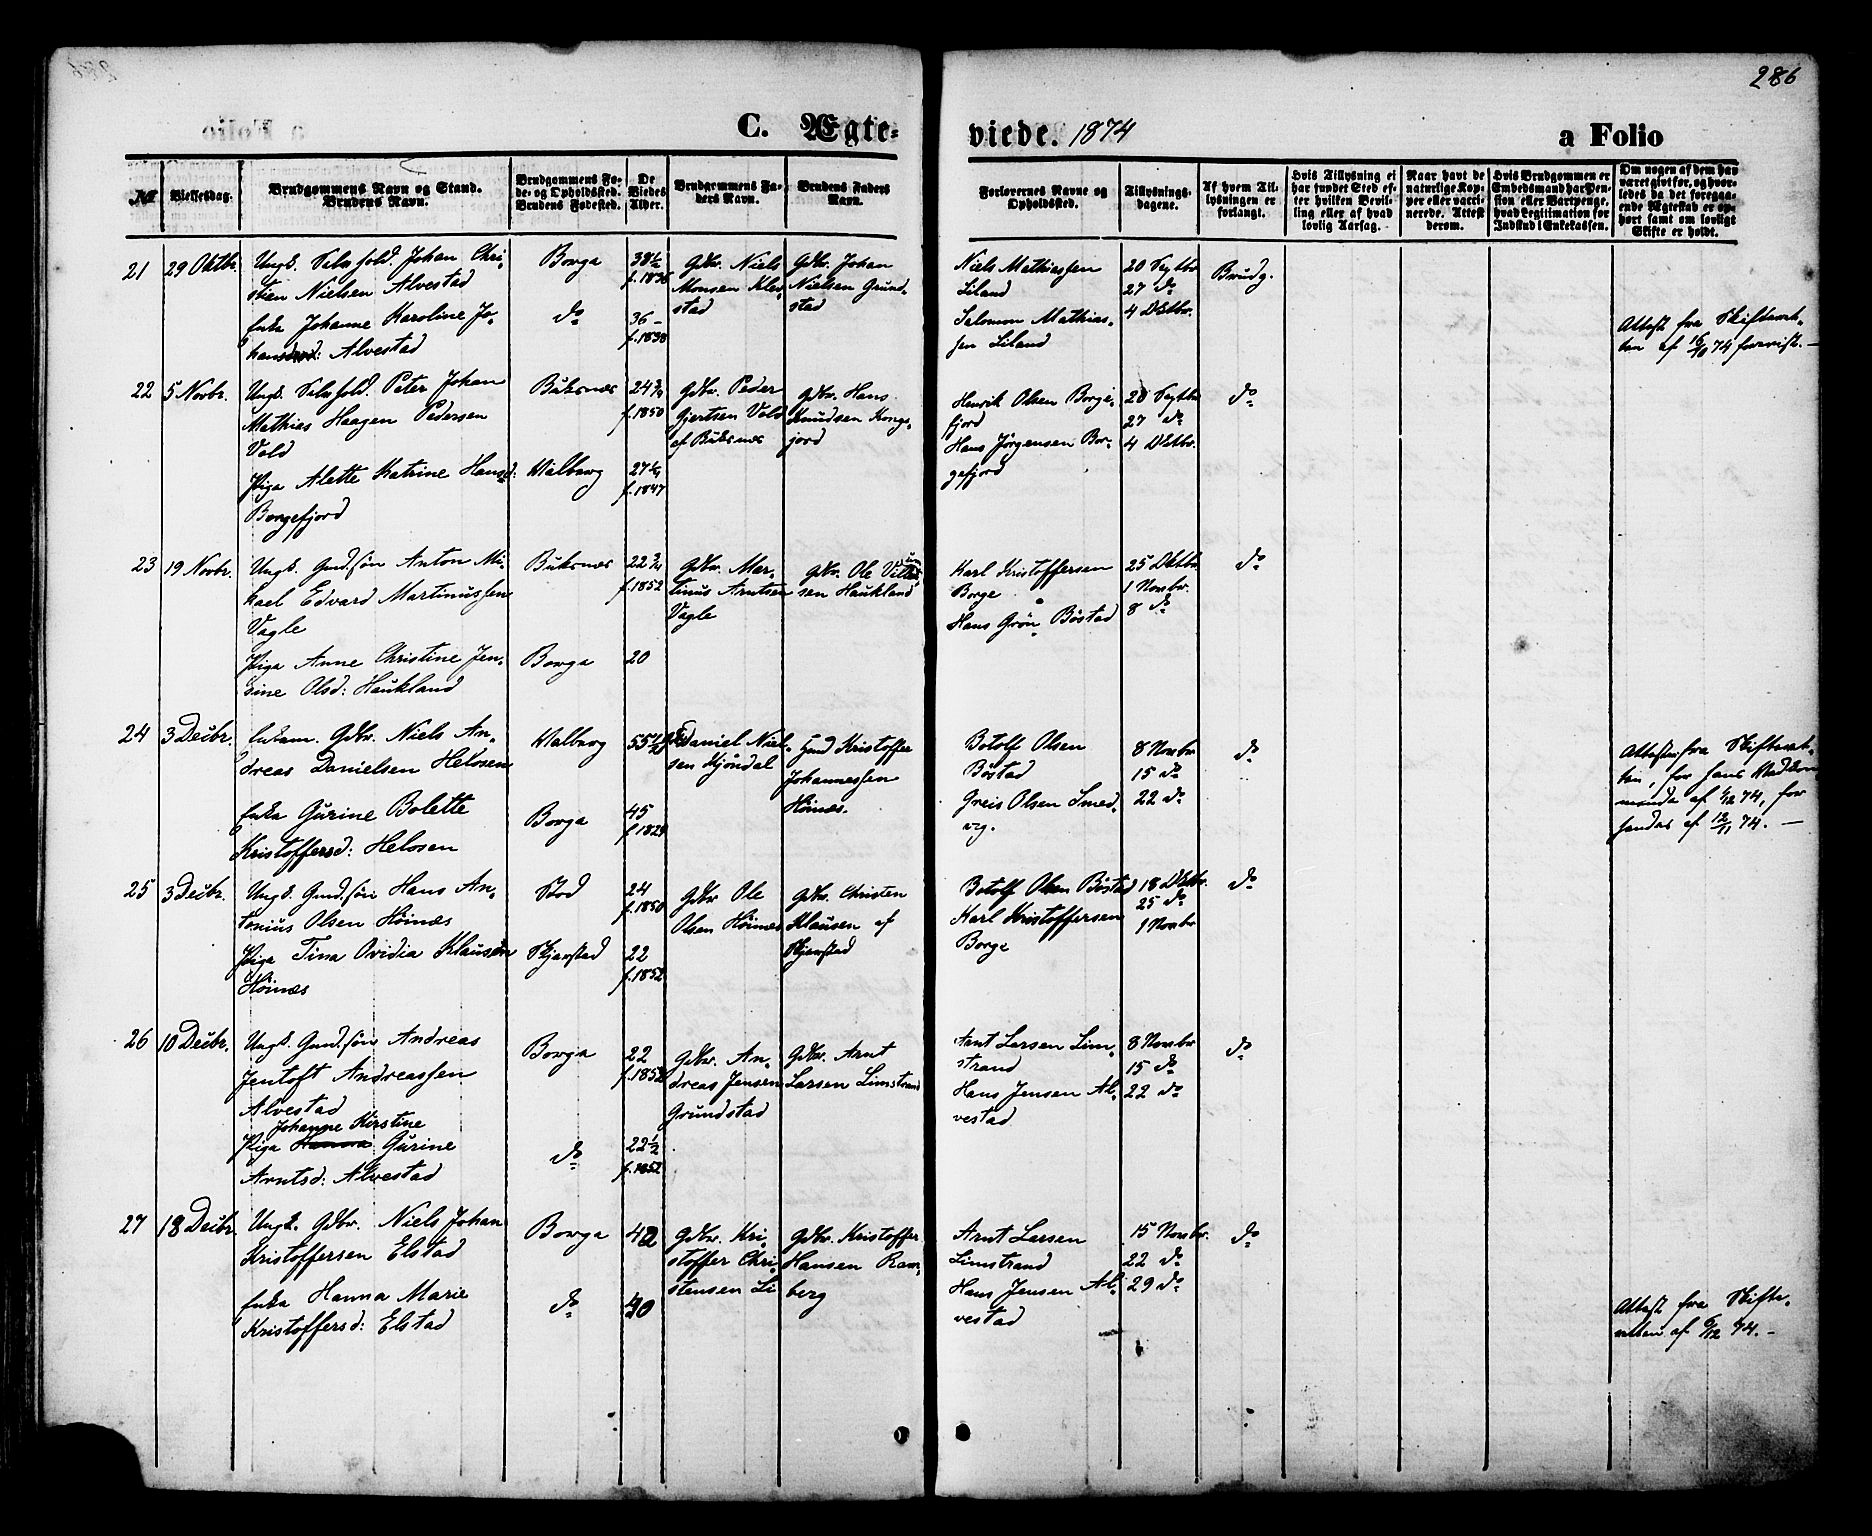 286
C. Ægte-
viede. 1874
a Folio
№
Vielsesdag.
Brudgommens Navn og Stand.
Brudens Navn.
Brudgommens Fø-
de- og Opholdssted.
Brudens Fødested.
De
Viedes
Alder.
Brudgommens Fa-
ders Navn.
Brudens Faders
Navn.
Forlovernes Navne og
Opholdssted.
Tillysnings-
dagene.
Af hvem Til-
lysningen er
forlangt.
Hvis Tillysning ei
har fundet Sted ef-
ter hvilken Bevil-
ling eller af hvad
lovlig Aarsag.
Naar havt de
naturlige Kop-
per eller vacci-
nerede. Attest
derom.
Hvis Brudgommen er
Embedsmand har Pen-
sion eller Vartpenge,
hvad Legitimation for
Indskud i Enkekassen.
Om nogen af dem hav
været gift før, og hvor-
ledes da det foregaa-
ende Ægteskab er op-
hørt samt om lovligt
Skifte er holdt.
21
29 Oktbr.
Ungk. Selvfold. Johan Chri-
stien Nielsen Alvestad
Enke Johanne Karoline Jo-
hansd: Alvestad
Borge
do
38½
f. 1836
36
f. 1838
Gdbr. Niels
Monsen Klev-
stad
Gdbr. Johan
Nielsen Grund-
stad
Niels Mathiassen
Liland
Salomon Mathias-
sen Liland
20 Septbr
27 do
4 Oktbr.
Brudg.
Attest fra Skifteret-
ten af 16/10 74 forevist. —
22
5 Novbr.
Ungk. Selvfold. Peter Johan
Mathias Haagen Pedersen
Vold
Pige Alette Katrine Hansd:
Borgefjord
Buksnæs
Walberg
24¾
f. 1850
27¼
f. 1847
Gdbr. Peder
Gjertsen Vold
af Buksnæs
Gdbr. Hans
Knudsen Kongs-
jord
Henrik Olsen Borge-
fjord
Hans Jørgensen Bor-
gefjord
20 Septbr
27 do
4 Oktbr.
do
23
19 Novbr.
Ungk. Gmd.søn Anton Mi-
kael Edvard Martinussen
Vagle
Pige Anne Christine Jen-
sine Olsd: Haukland
Buksnæs
Borge
22¾
f. 1852
20
Gdbr. Mar-
tinus Arntsen
Vagle
Gdbr. Ole
sen Haukland
Karl Kristoffersen
Borge
Hans Grøn Bøstad
25 Oktbr
1 Novbr.
8 do
do
24
3 Decbr.
Enkem. Gdbr. Niels An-
dreas Danielsen Helosen
Enke Gurine Bolette
Kristoffersd: Helosen
Walberg
Borge
55
45
f. 1829
Daniel Niel-
sen Kjøndal
Gmd Kristoffer
Johannessen
Høines.
Botolf Olsen
Bøstad
Greis Olsen Smed-
vig.
8 Novbr
15 do
22 do
do
Attester fra Skifteret-
ten, for hans Vedkom-
mende af 1/12 74, for
hendes af 12/11 74. —
25
3 Decbr.
Ungk. Gmd.søn Hans An-
tonius Olsen Høinæs
Pige Tina Ovidia Klausen
Høinæs
Stod
Skjerstad
24
f. 1850
22
f. 1852
Gdbr Ole
Olsen Høinæs
Gdbr. Christen
Klausen af
Skjerstad
Botolf Olsen Bøstad
Karl Kristoffersen
Borge
18 Oktbr.
25 do
1 Novbr
do
26
10 Decbr.
Ungk. Gmd.søn Andreas
Jentoft Andreassen
Alvestad
Johanne Kirstine
Pige Hanna Gurine
Arntsd: Alvestad
Borge
do
22
f. 1852
22½
f. 1852
Gdbr. An-
dreas Jensen
Grundstad
Gdbr. Arnt
Larsen Limstrand
Arnt Larsen Lim-
strand
Hans Jensen Al-
vestad
8 Novbr
15 do
22 do
do
27
18 Decbr.
Ungk. Gdbr. Niels Johan
Kristoffersen Elstad
Enke Hanna Marie
Kristoffersd: Elstad
Borge
do
42
40
Gdbr. Kri-
stoffer Chri-
stensen Li
Gdbr. Kristoffer
Hansen Ram-
berg
Arnt Larsen
Limstrand
Hans Jensen Al-
vestad
15 Novbr.
22 do
29 do
do
Attest fra Skifte-
retten af 6/12 74. —